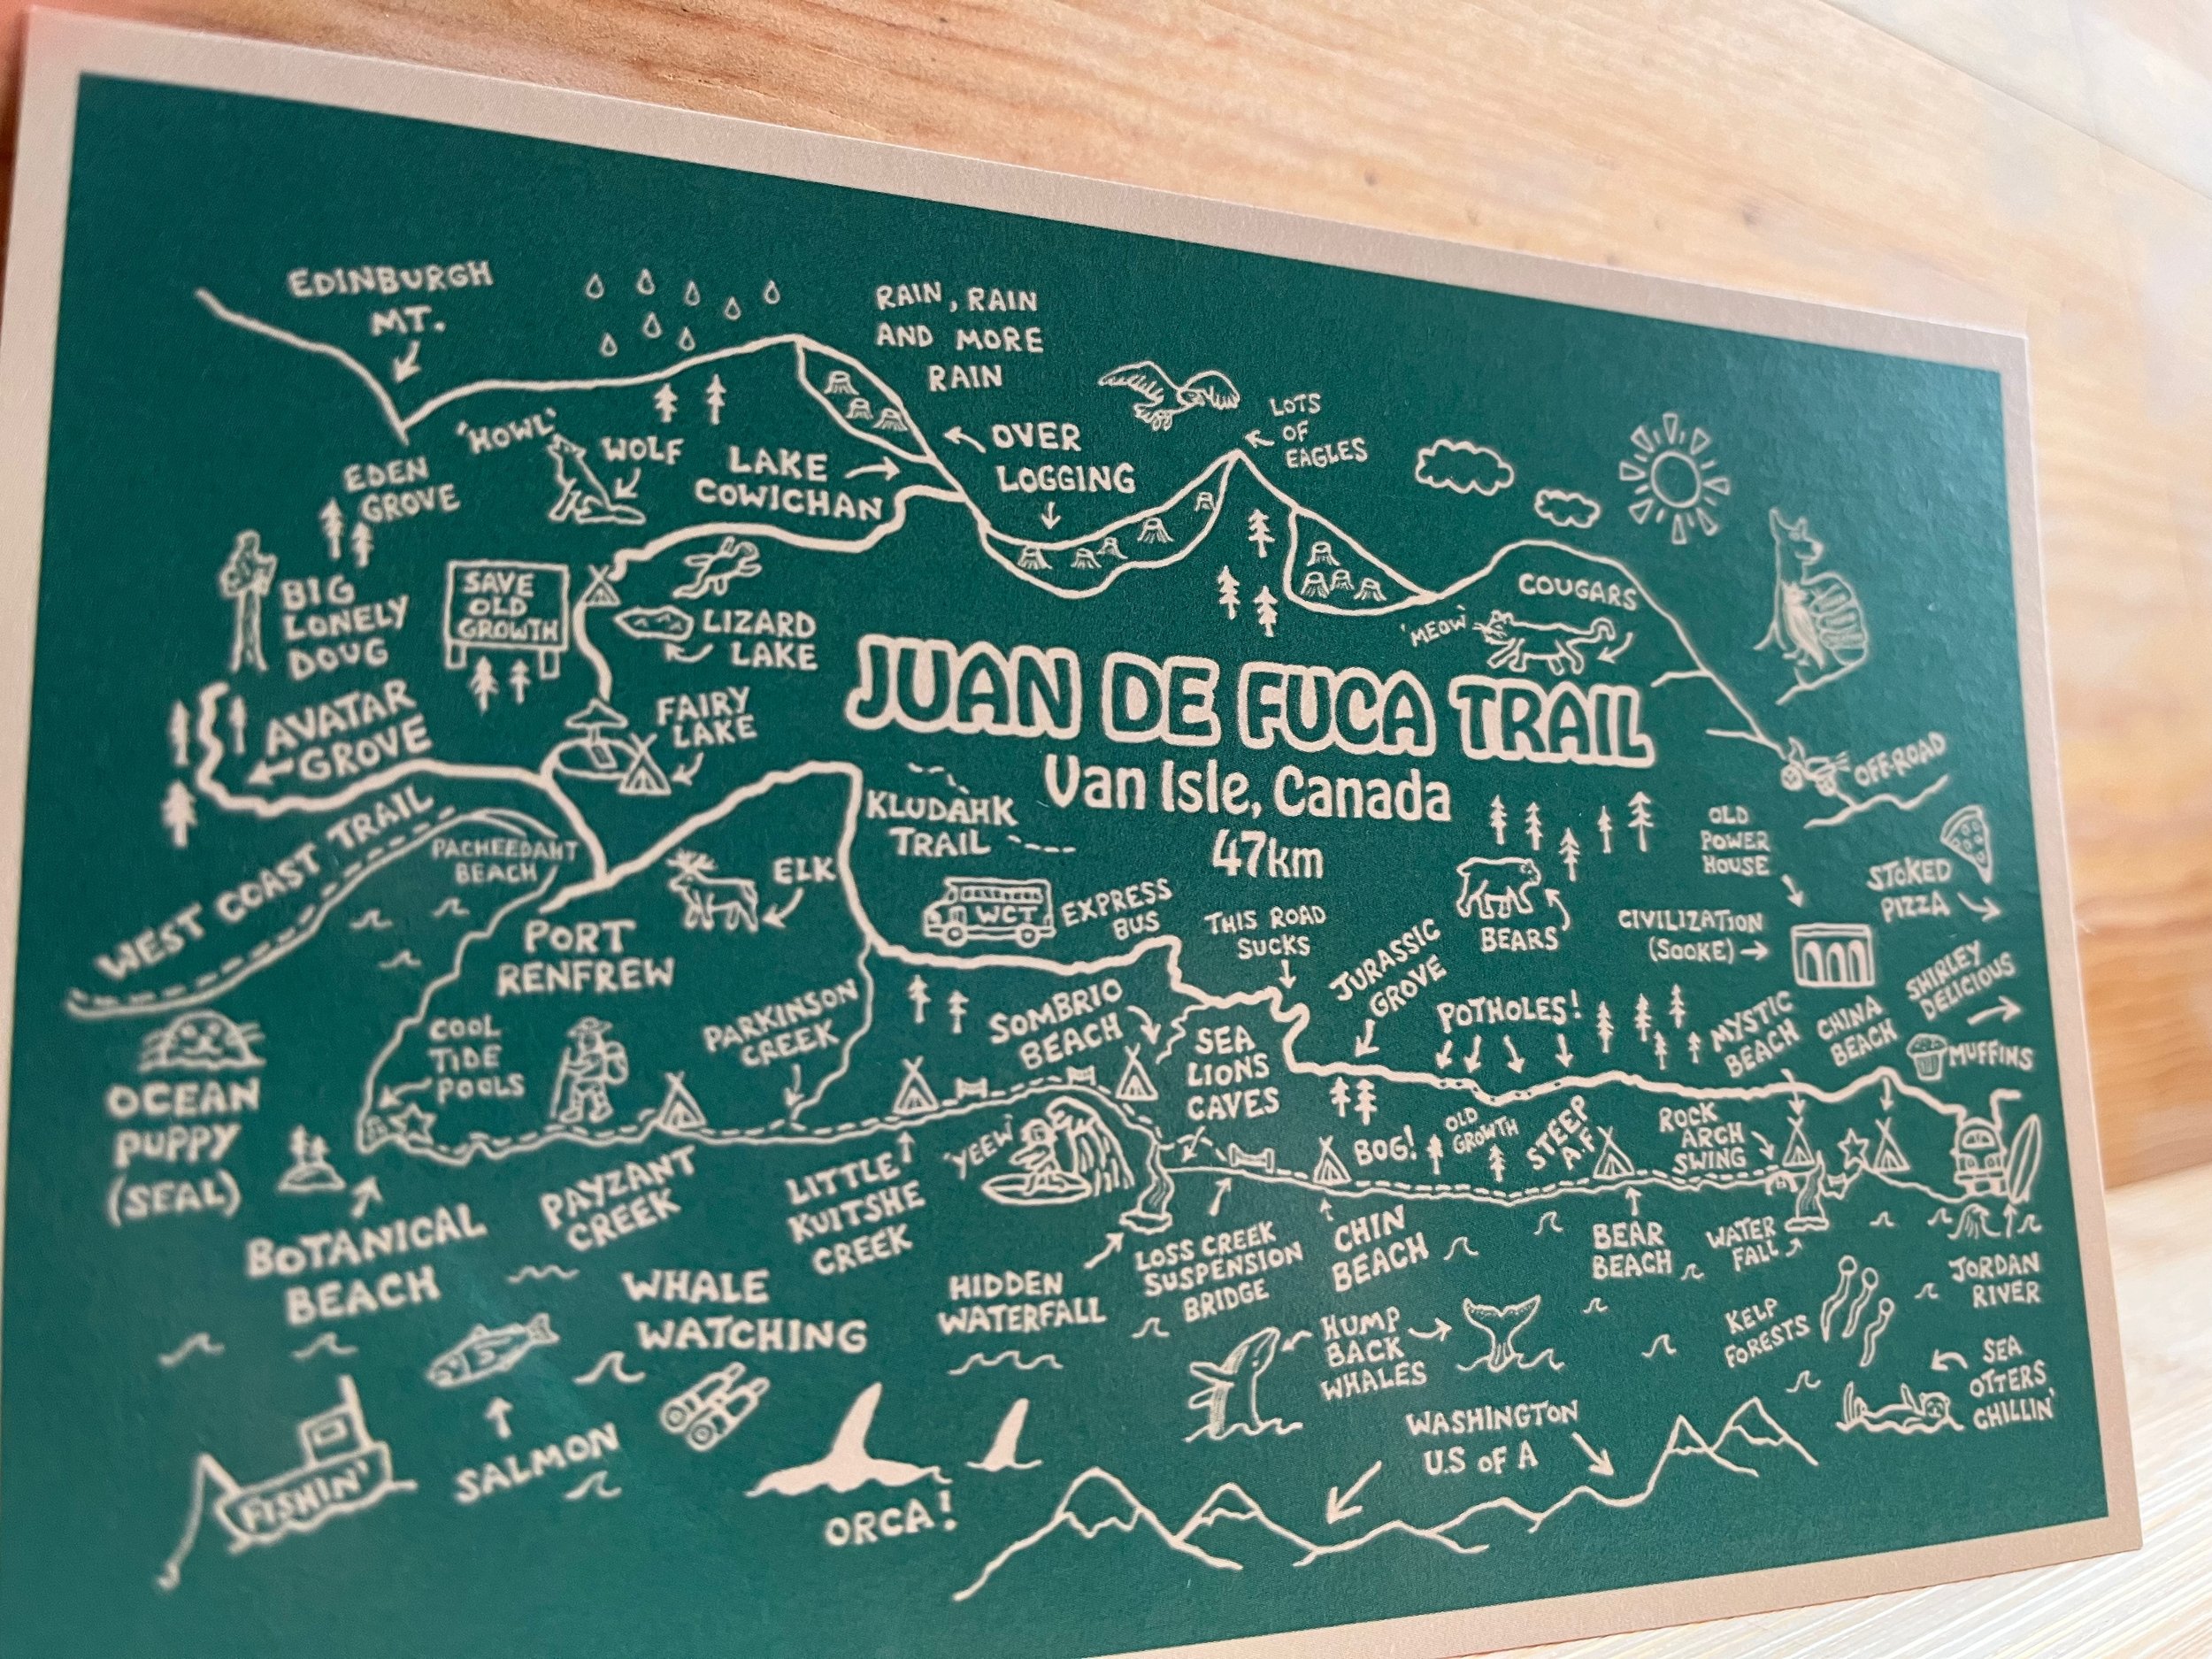 EDINBURGH
MT.
RAIN, RAIN
AND MORE
RAIN
'HOWL'
WOLF
LAKE
COWICHAN
OVER
LOGGING
LOTS
OF
EAGLES
EDEN
GROVE
BIG
LONELY
DOUG
SAVE
OLD
GROWTH
LIZARD
LAKE
COUGARS
'MEOW'
AVATAR
GROVE
FAIRY
LAKE
JUAN DE FUCA TRAIL
Van Isle, Canada
47km
OFF-ROAD
WEST COAST TRAIL
PACHEEDAHT
BEACH
KLUDAHK
TRAIL
ELK
PORT
RENFREW
WCT
EXPRESS
BUS
THIS ROAD
SUCKS
BEARS
OLD
POWER
HOUSE
STOKED
PIZZA
CIVILIZATION
(SOOKE)
JURASSIC
GROVE
POTHOLES!
MYSTIC
BEACH
CHINA
BEACH
SHIRLEY
DELICIOUS
MUFFINS
COOL
TIDE
POOLS
PARKINSON
CREEK
SOMBRIO
BEACH
SEA
LIONS
CAVES
OCEAN
PUPPY
(SEAL)
BOTANICAL
BEACH
PAYZANT
CREEK
LITTLE
KUITSHE
CREEK
'YEEW'
BOG!
OLD
GROWTH
STEEP
A.F.
ROCK
ARCH
SWING
HIDDEN
WATERFALL
LOSS CREEK
SUSPENSION
BRIDGE
CHIN
BEACH
BEAR
BEACH
WATER
FALL
JORDAN
RIVER
WHALE
WATCHING
HUMP
BACK
WHALES
KELP
FORESTS
SEA
OTTERS
CHILLIN'
FISHIN'
SALMON
ORCA!
WASHINGTON
U.S OF A